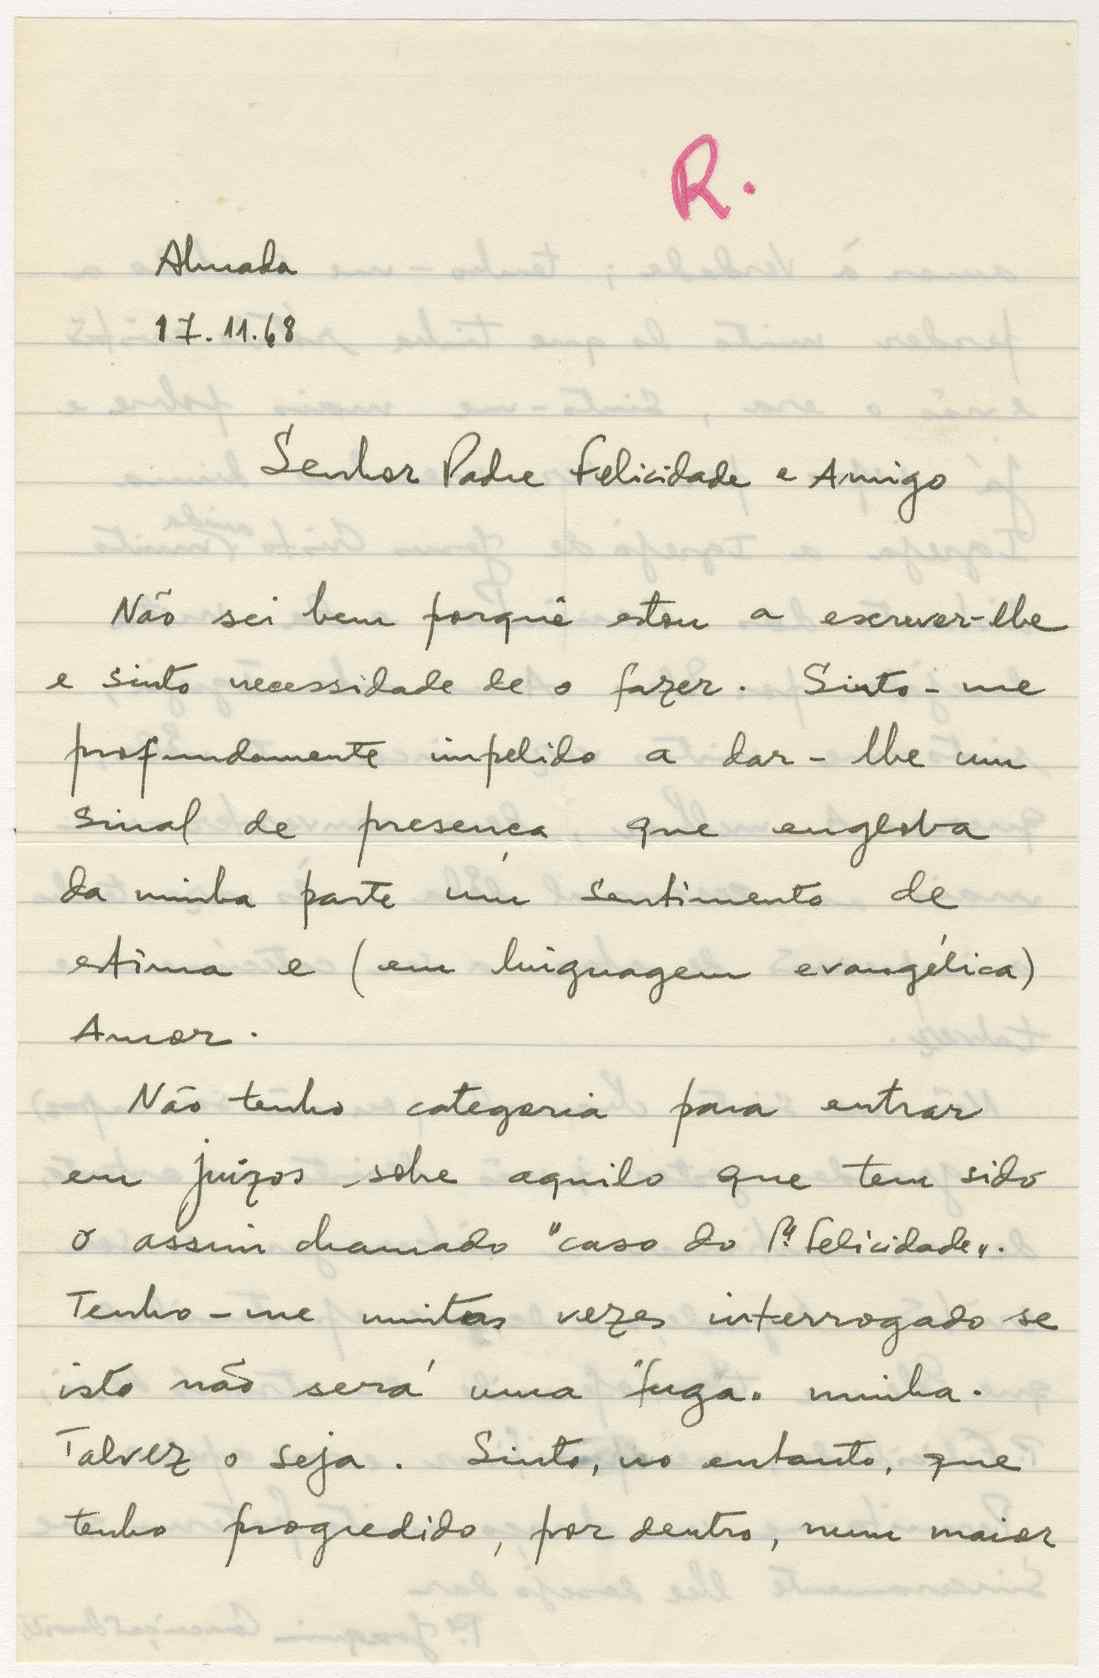 R.
Almada
17.11.68
Senhor Padre Felicidade e Amigo
Não sei bem porquê estou a escrever-lhe
e sinto necessidade de o fazer. Sinto-me
profundamente impelido a dar-lhe um
sinal de presença que engloba
da minha parte um sentimento de
estima e (em linguagem evangélica)
Amor.
Não tenho categoria para entrar
em juízos sobre aquilo que tem sido
o assim chamado "caso do Pe. Felicidade".
Tenho-me muitas vezes interrogado se
isto não será uma "fuga" minha.
Talvez o seja. Sinto, no entanto, que
tenho progredido, por dentro, num maior